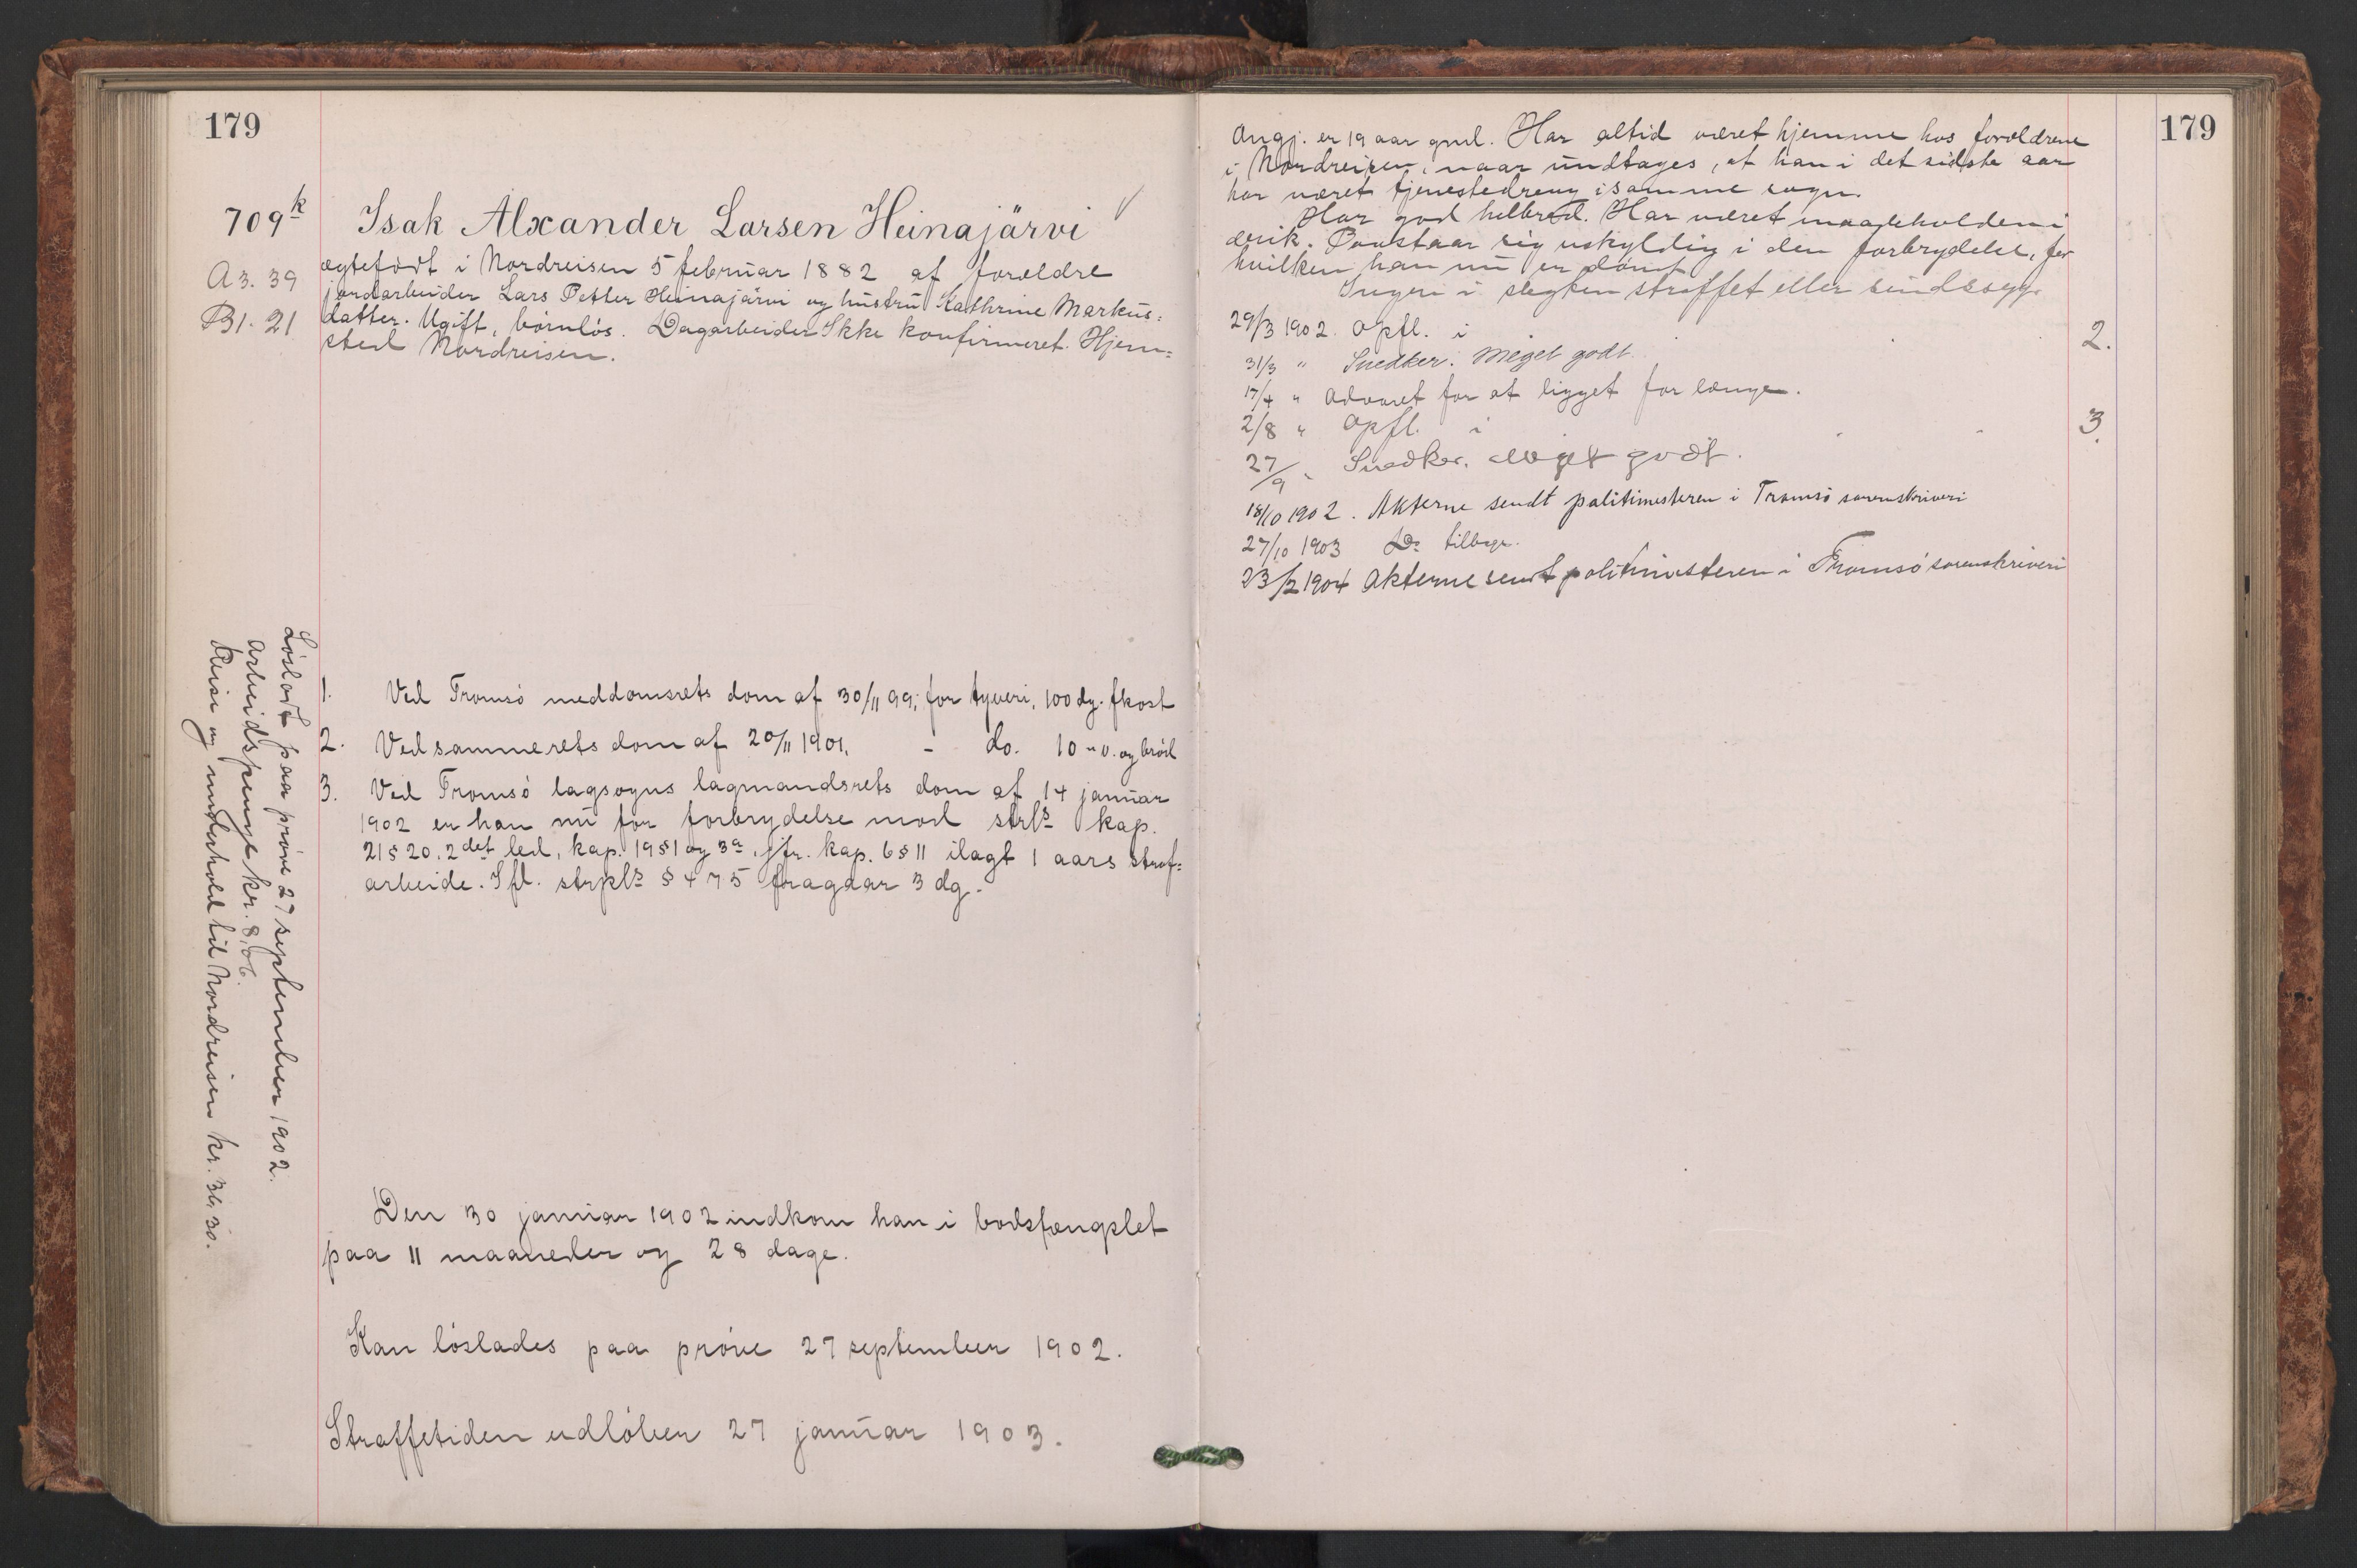 179
709k Isak Alxander Larsen Heinajärvi
A3. 39
B1. 21
ægtefødt i Nordreisen 5 februar 1882 af forældre
jordarbeider Lars Petter Heinajärvi og hustru Kathrine Markus=
datter. Ugift, børnløs. Dagarbeider Ikke konfirmeret. Hjem=
sted Nordreisen.
1. Ved Tromsø meddomsrets dom af 30/11 99, for tyveri, 100 dg. fkost
2. Ved sammerets dom af 20/11 1901, - do. 10 - v. og brød
3. Ved Tromsø lagsogns lagmandsrets dom af 14 januar
1902 er han nu for forbrydelse mod strls kap.
21 § 20, 2det led, kap. 19 § 1 og 3a, jfr. kap. 6 § 11 ilagt 1 aars straf=
arbeide. Ifl. strpls § 475 fragaar 3 dg.
Løsladt paa prøve 27 september 1902.
Arbeidspenge kr. 8,06.
Reise og underhold til Nordreisen kr. 36,30.
Den 30 januar 1902 indkom han i bodsfængslet
paa 11 maaneder og 28 dage.
Kan løslades paa prøve 27 september 1902.
Straffetiden udløber 27 januar 1903.
179
Angj. er 19 aar gml. Har altid været hjemme hos forældrene
i Nordreisen, naar undtages, at han i det sidste aar
har været tjenestedreng i samme sogn.
Har god helbred. Har været maadeholden i
drik. Paastaar sig uskyldig i den forbrydelse, for
hvilken han nu er dømt.
Ingen i slegten straffet eller sindssyg.
29/3 1902. Opfl. i 2.
31/3 " Snedker. Meget godt.
17/4 " Advaret for at ligget for længe.
2/8 " Opfl. i 3.
27/9 " Snedker. Meget godt.
18/10 1902. Akterne sendt politimesteren i Tromsø sorenskriveri
27/10 1903 Do tilbage.
23/2 1904 Akterne sendt politimesteren i Tromsø sorenskriveri